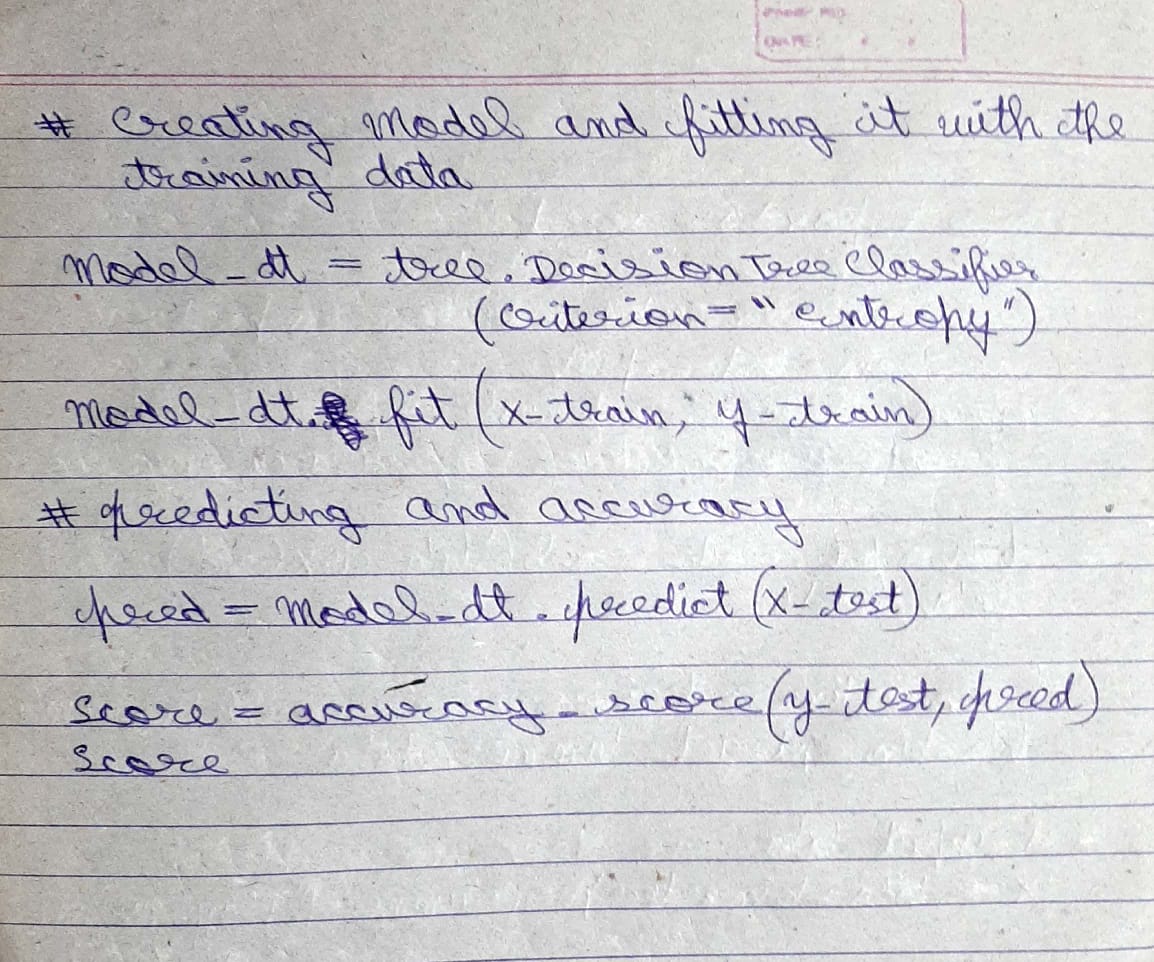 PAGE NO.
DATE:
# Creating model and fitting it with the
training data
model_dt = tree.DecisionTreeClassifier
(criterion="entropy")
model_dt. fit (x_train, y_train)
# predicting and accuracy
pred = model_dt.predict (x_test)
score = accuracy_score (y_test, pred)
score